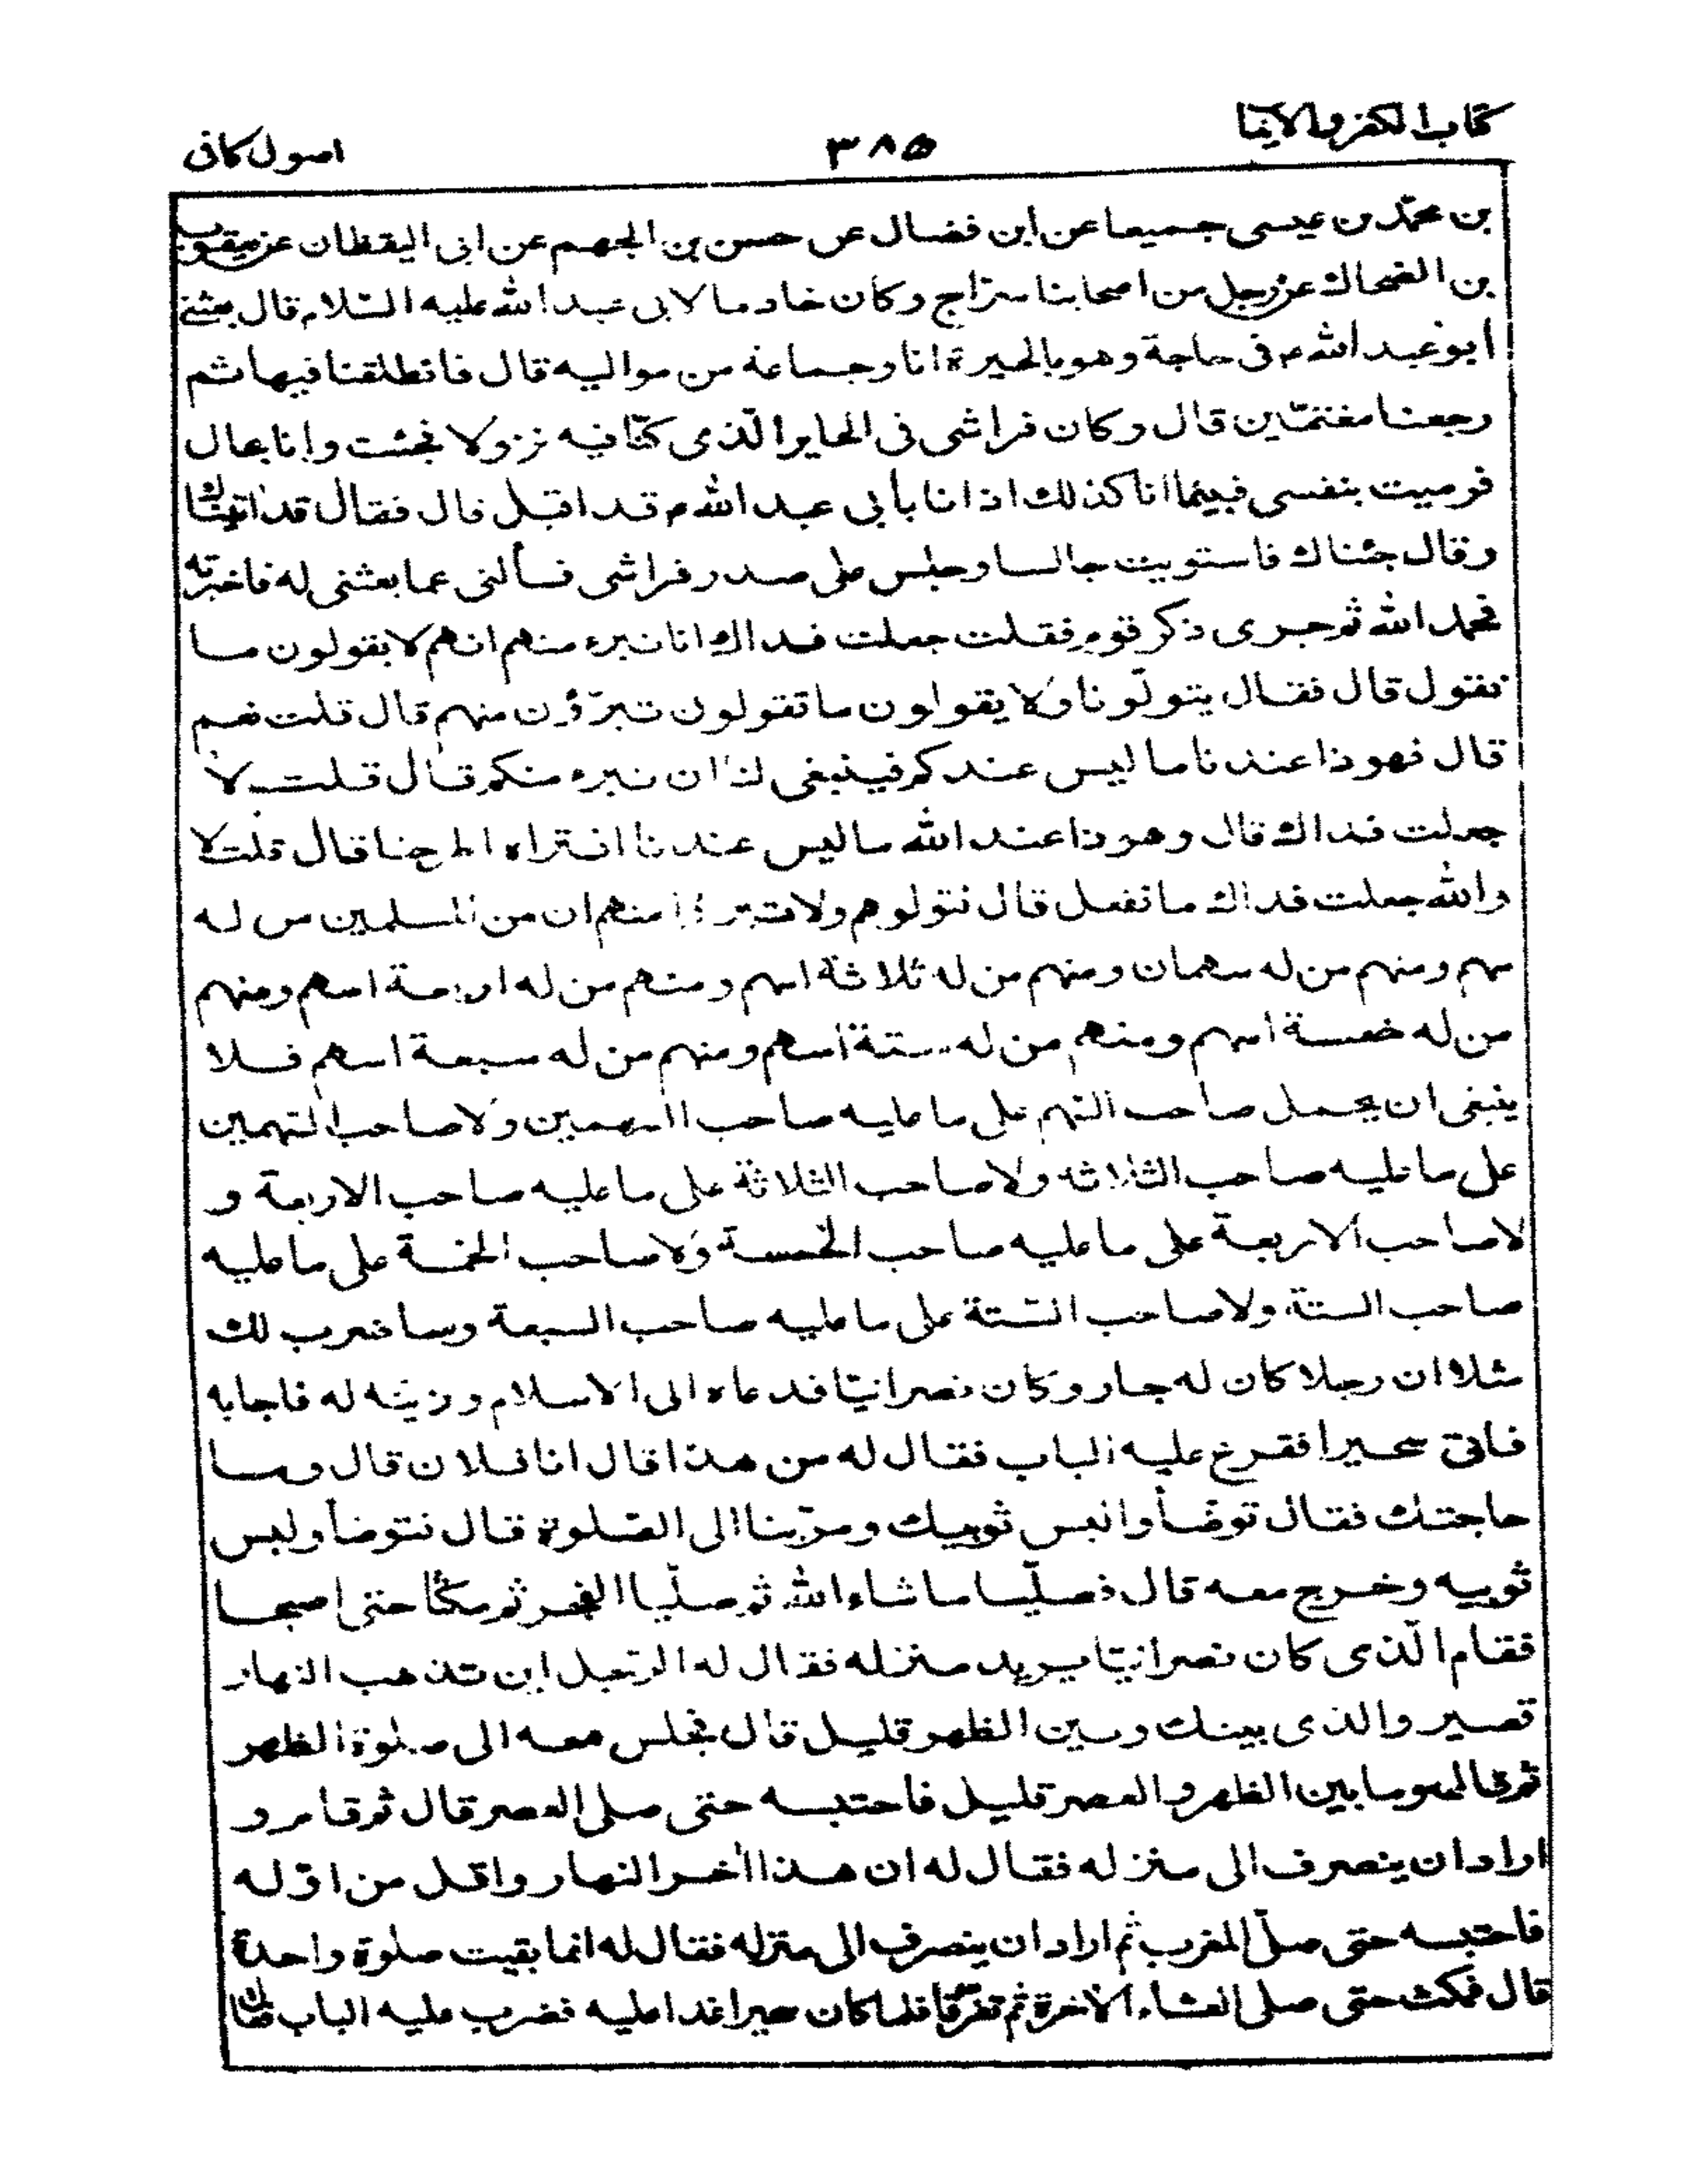 كتاب الكفر والايمان
٣٨٥
اصول كافى
بن محمّد بن عيسى جميعا عن ابن فضال عن حسن بن الجهم عن ابى اليقظان عن يعقوب
بن الضحاك عن رجل من اصحابنا سرّاج وكان خادما لابى عبد الله عليه السّلام قال بعثنى
ابو عبد الله ع فى حاجة وهو بالحيرة انا وجماعة من مواليه قال فانطلقنا فيها ثم
رجعنا مغتمّين قال وكان فراشى فى الحاير الّذى كنّا فيه نزولا فجئت وانا بحال
فرميت بنفسى فبينما انا كذلك اذ انا بأبى عبد الله م قد اقبل قال فقال قد اتيناك
وقال جئناك فاستويت جالسا وجلس على صدر فراشى فسألنى عما بعثنى له فاخبرته
فحمد الله ثم جرى ذكر قوم فقلت جعلت فداك انا نبرء منهم انهم لا يقولون ما
نقول قال فقال يتولّونا ولا يقولون ما تقولون تبرّؤن منهم قال قلت نعم
قال فهو ذا عندنا ما ليس عندكم فينبغى لنا ان نبرء منكم قال قلت لا
جعلت فداك قال وهو ذا عند الله ما ليس عندنا افتراه اطرحنا قال قلت لا
والله جعلت فداك ما نفعل قال فتولوهم ولا تبرؤا منهم ان من المسلمين من له
سهم ومنهم من له سهمان ومنهم من له ثلاثة اسهم ومنهم من له اربعة اسهم ومنهم
من له خمسة اسهم ومنهم من له ستة اسهم ومنهم من له سبعة اسهم فلا
ينبغى ان يحمل صاحب السّهم على ما عليه صاحب السهمين ولا صاحب السّهمين
على ما عليه صاحب الثلاثة ولا صاحب الثلاثة على ما عليه صاحب الاربعة و
لا صاحب الاربعة على ما عليه صاحب الخمسة ولا صاحب الخمسة على ما عليه
صاحب الستة ولا صاحب السّتة على ما عليه صاحب السبعة وساضرب لك
مثلا ان رجلا كان له جار وكان نصرانيّا فدعاه الى الاسلام وزيّنه له فاجابه
فاتى سحيرا فقرع عليه الباب فقال له من هذا قال انا فلان قال وما
حاجتك فقال توضّأ والبس ثوبيك ومرّ بنا الى الصّلوة قال فتوضأ ولبس
ثوبيه وخرج معه قال فصلّيا ما شاء الله ثم صلّيا الفجر ثم مكثا حتى اصبحا
فقام الّذى كان نصرانيّا يريد منزله فقال له الرّجل اين تذهب النهار
قصير والذى بينك وبين الظهر قليل قال فجلس معه الى صلوة الظهر
ثم قال وما بين الظهر والعصر قليل فاحتبسه حتى صلى العصر قال ثم قام و
اراد ان ينصرف الى منزله فقال له ان هذا اٰخر النهار واقل من اوّله
فاحتبسه حتى صلّى المغرب ثم اراد ان ينصرف الى منزله فقال له انما بقيت صلوة واحدة
قال فمكث حتى صلى العشاء الاخرة ثم تفرّقا فلما كان سحيرا غدا عليه فضرب عليه الباب فقال